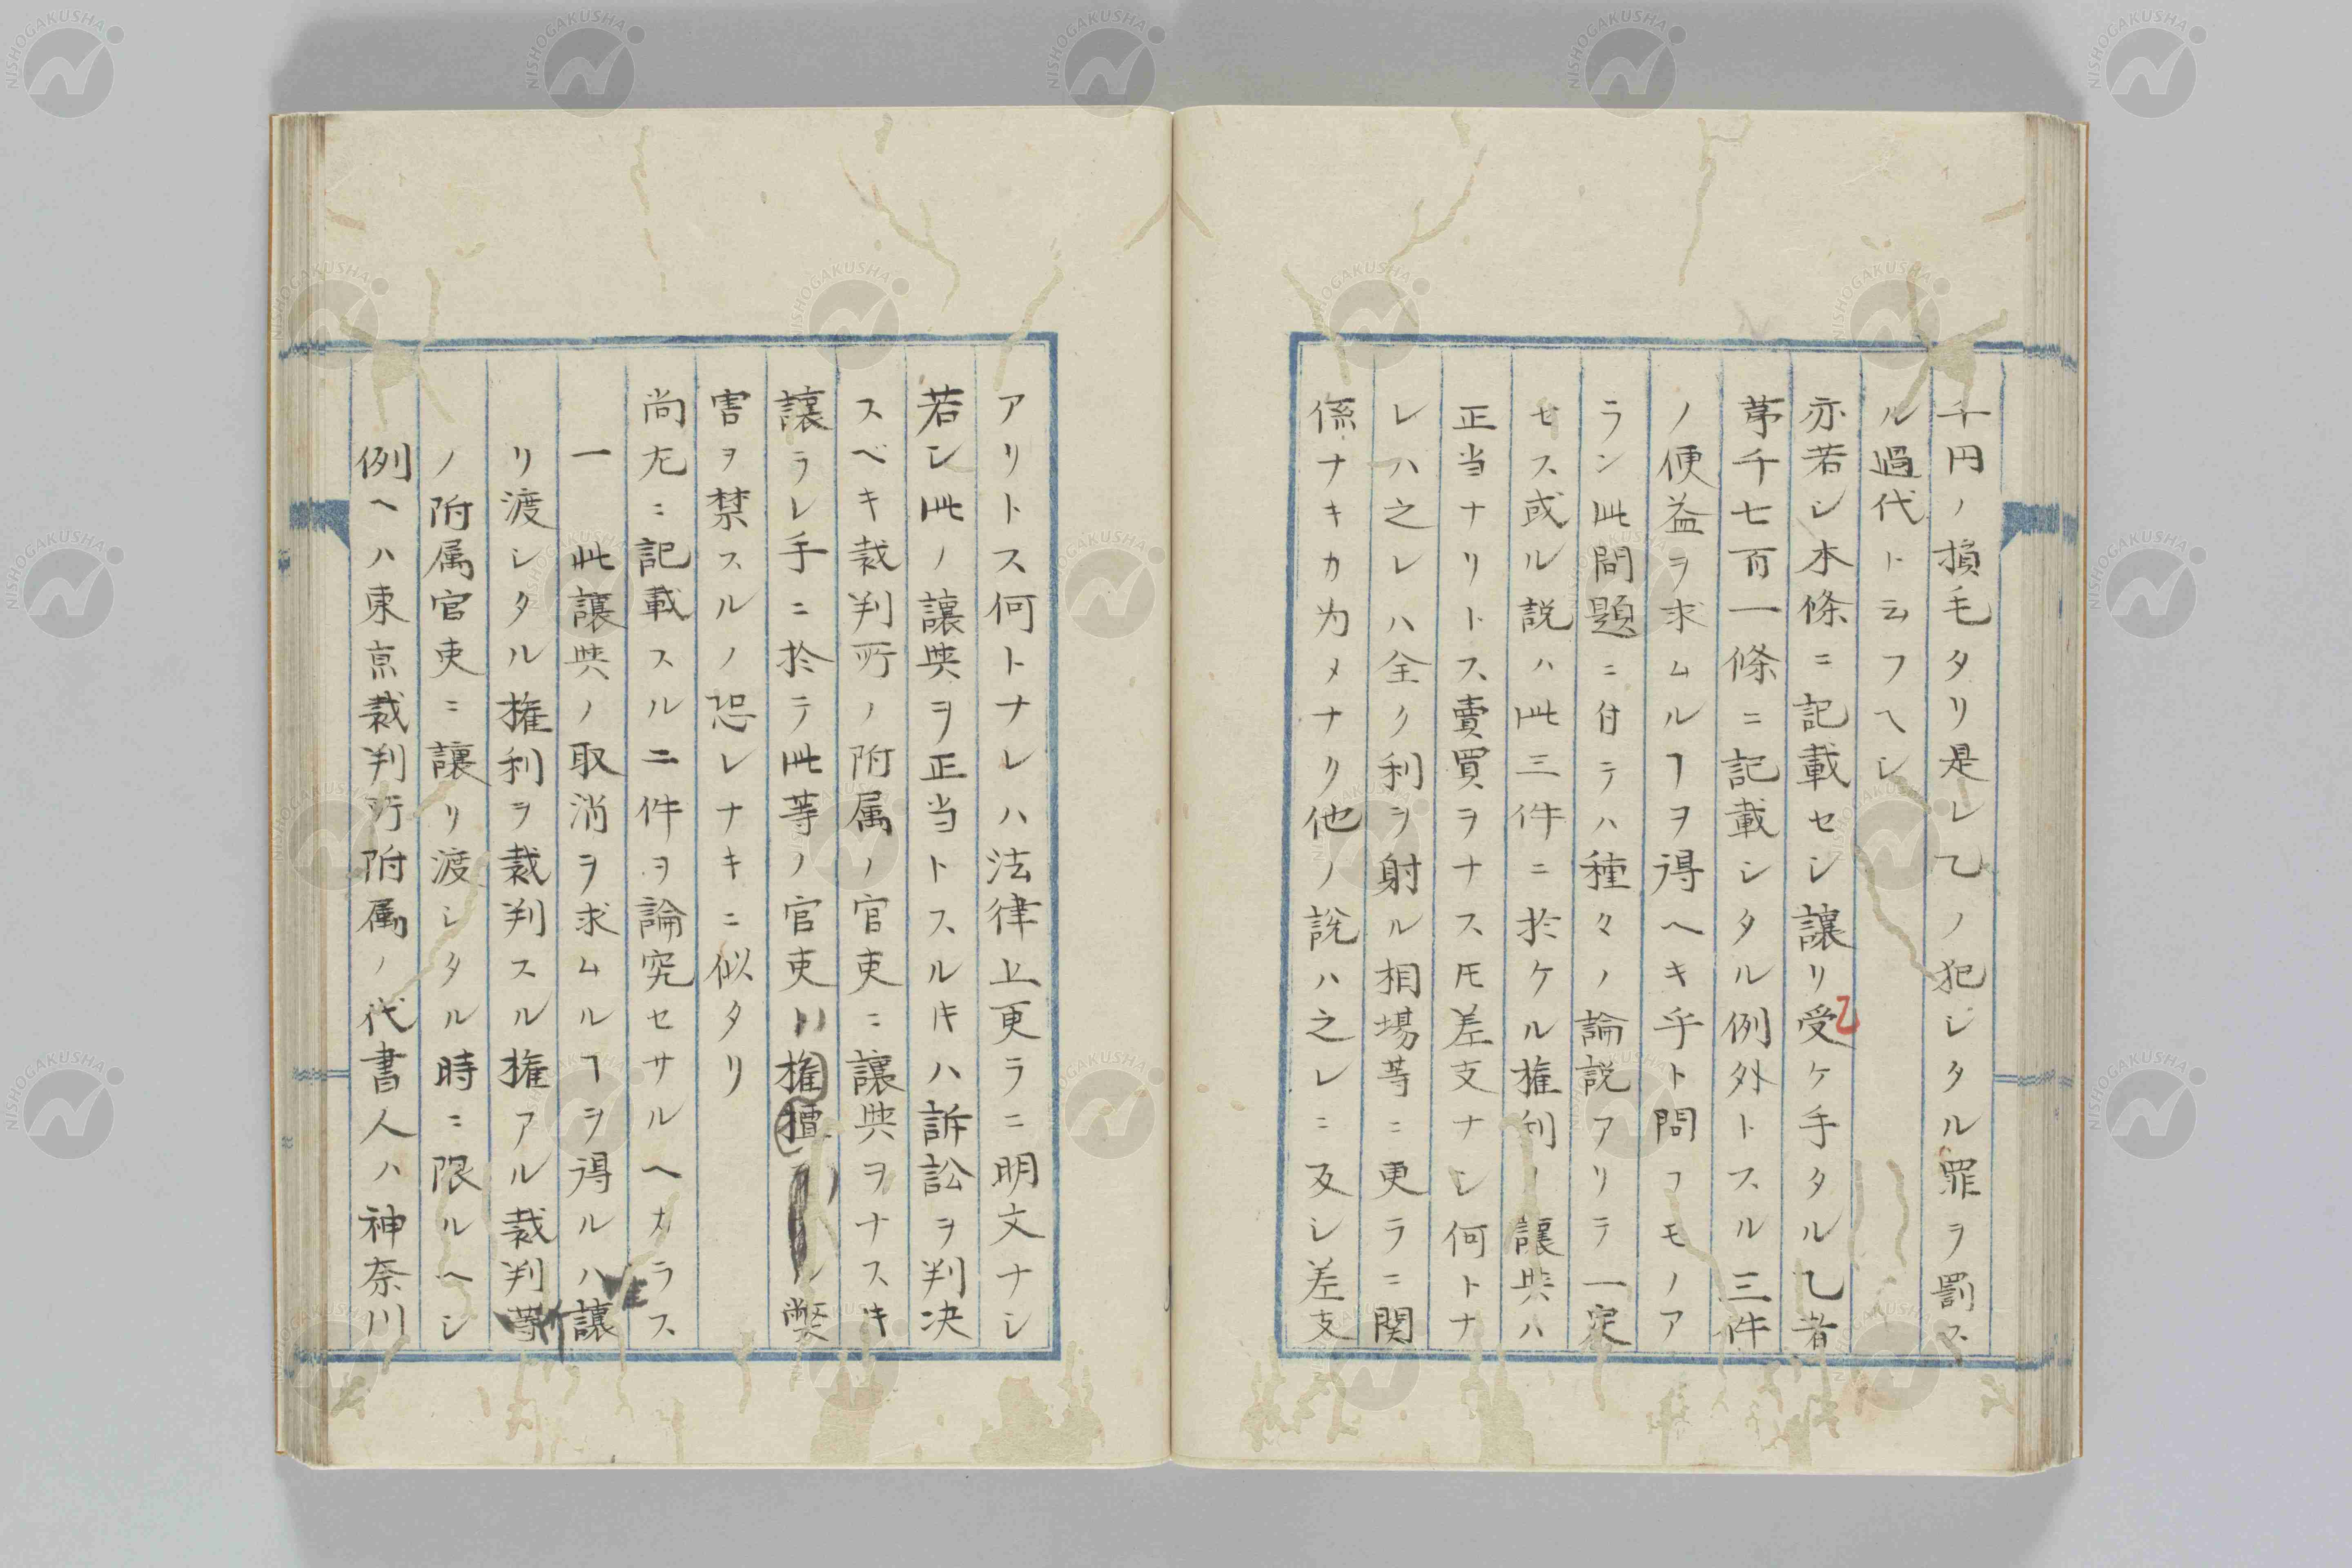 千円ノ損毛タリ是レ乙ノ犯シタル罪ヲ罰ス
ル過代ト云フヘシ
亦若シ本條ニ記載セシ讓リ受ケ手タル乙者
乙
苐千七百一條ニ記載シタル例外トスル三件
ノ便益ヲ求ムルヿヲ得ヘキ乎ト問フモノア
ラン此問題ニ付テハ種々ノ論説アリテ一定
セス或ル説ハ此三件ニ於ケル権利ノ讓與ハ
正当ナリトス賣買ヲナスモ差支ナシ何トナ
レハ之レハ全ク利ヲ射ル相場等ニ更ラニ関
係ナキカ为メナリ他ノ説ハ之レニ反シ差支
アリトス何トナレハ法律上更ラニ明文ナシ
若シ此ノ讓與ヲ正当トスル𪜈ハ訴訟ヲ判决
スベキ裁判所ノ附属ノ官吏ニ讓與ヲナスキ
讓ラレ手ニ於テ此等ノ官吏ハ権擅ル弊
害ヲ禁スルノ恐レナキニ似タリ
尚左ニ記載スル二件ヲ論究セサルヘカラス
一 此讓與ノ取消ヲ求ムルヿヲ得ルハ讓
リ渡シタル権利ヲ裁判スル権アル裁判所
ノ附属官吏ニ讓リ渡シタル時ニ限ルヘシ
例ヘハ東京裁判所附属ノ代書人ハ神奈川
NISHOGAKUSHA